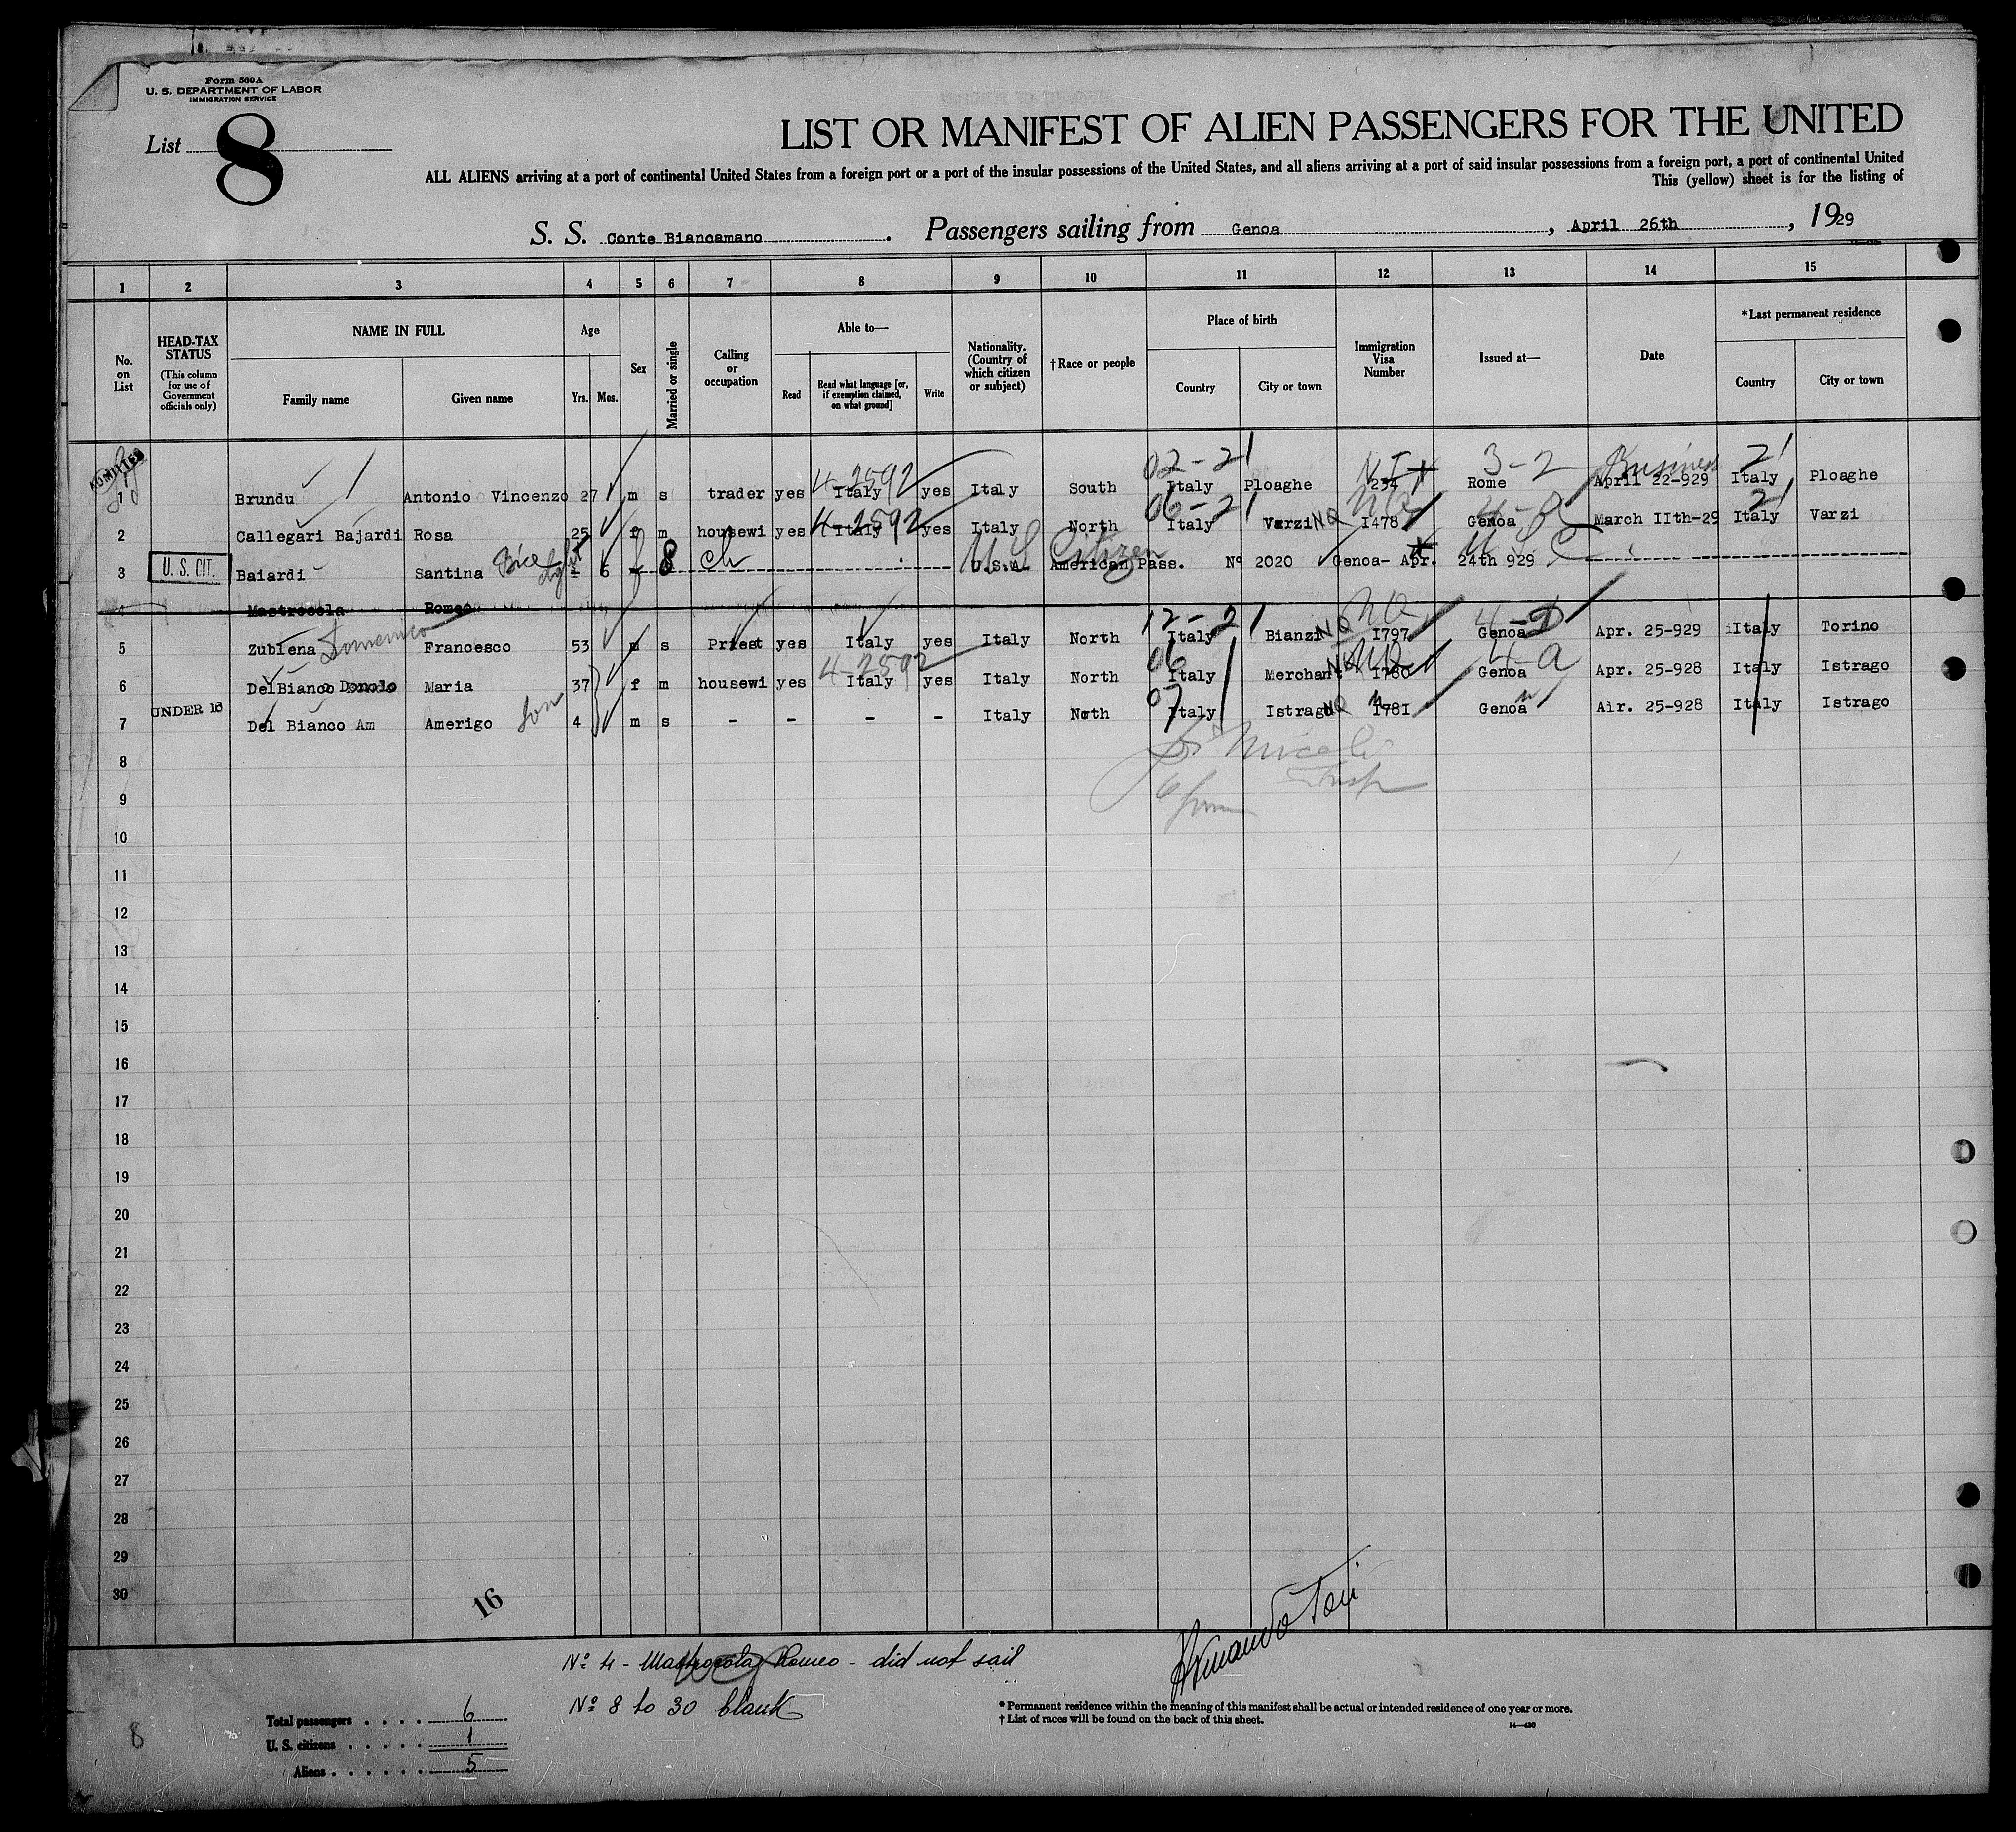 Form 500A
U. S. DEPARTMENT OF LABOR
IMMIGRATION SERVICE
List 8
LIST OR MANIFEST OF ALIEN PASSENGERS FOR THE UNITED
ALL ALIENS arriving at a port of continental United States from a foreign port or a port of the insular possessions of the United States, and all aliens arriving at a port of said insular possessions from a foreign port, a port of continental United
This (yellow) sheet is for the listing of
S. S. Conte Biancamano . Passengers sailing from Genoa , April 26th , 1929
1 2 3 4 5 6 7 8 9 10 11 12 13 14 15
No. on List
HEAD-TAX STATUS
(This column for use of Government officials only)
NAME IN FULL
Family name Given name
Age
Yrs. Mos.
Sex
Married or single
Calling or occupation
Able to—
Read
Read what language [or, if exemption claimed, on what ground]
Write
Nationality. (Country of which citizen or subject)
†Race or people
Place of birth
Country City or town
Immigration Visa Number
Issued at—
Date
*Last permanent residence
Country City or town
ADMITTED
02-21 3-2 Business 21
4-2592
1 Brundu Antonio Vincenzo 27 m s trader yes Italy yes Italy South Italy Ploaghe 234 Rome April 22-929 Italy Ploaghe
06-21 21
4-2592
2 Callegari Bajardi Rosa 25 f m housewi yes Italy yes Italy North Italy Varzi NQ 1478 Genoa March IIth-29 Italy Varzi
U S Citizen U S C
3 U. S. CIT. Baiardi Santina Bice - 6 f s ch U.S.A. American Pass. Nº 2020 Genoa- Apr. 24th 929
4 Mastrocola Romeo
12-21 NQ 4-D
5 Zublena Domenico Francesco 53 m s Priest yes Italy yes Italy North Italy Bianzi NQ 1797 Genoa Apr. 25-929 Italy Torino
4-2592 06 4-a
6 DelBianco Donolo Maria 37 f m housewi yes Italy yes Italy North Italy Merchant 1780 Genoa Apr. 25-928 Italy Istrago
UNDER 16 07
7 Del Bianco Am Amerigo son 4 m s - - - - Italy North Italy Istrago NQ 1781 Genoa Air. 25-928 Italy Istrago
8
9
10
11
12
13
14
15
16
17
18
19
20
21
22
23
24
25
26
27
28
29
30
16
Nº 4 - Mastrocola Romeo - did not sail
Nº 8 to 30 blank
* Permanent residence within the meaning of this manifest shall be actual or intended residence of one year or more.
† List of races will be found on the back of this sheet.
8
Total passengers . . . . 6
U. S. citizens . . . . . 1
Aliens . . . . . . 5